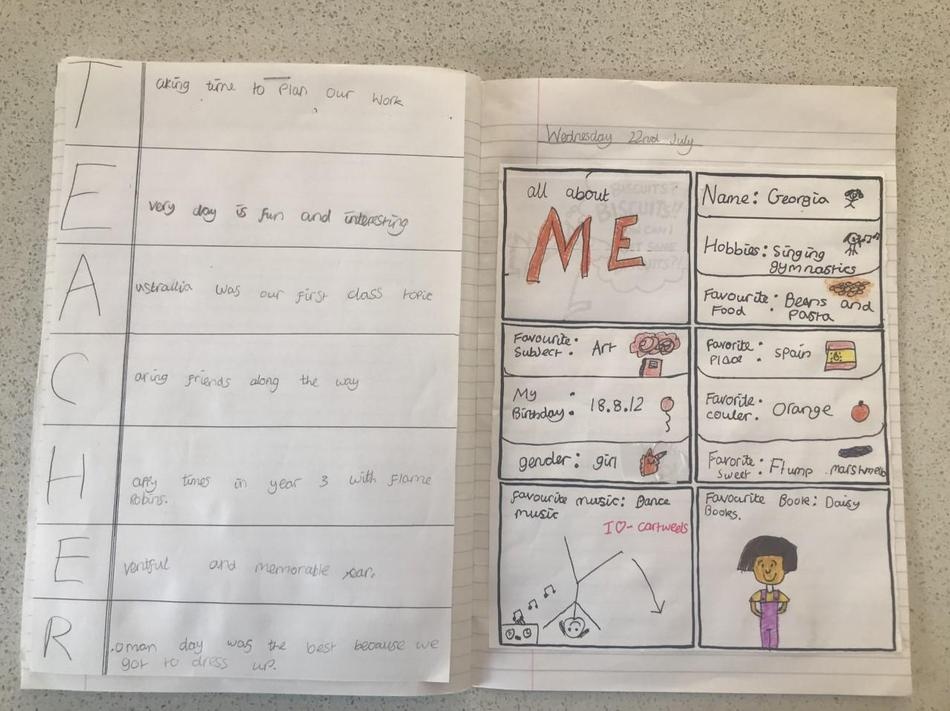 Taking time to Plan our work
Every day is fun and interesting
Australlia was our first class topic
Caring friends along the way
Happy times in year 3 with Flame
Robins.
Eventful and memorable year.
Roman day was the best because we
got to dress up.
Wednesday 22nd July
all about
ME
BISCUITS?
BISCUITS!!
CAN I
SOME
Name: Georgia
Hobbies: Singing
gymnastics
Favourite Food: Beans and
Pasta
Favourite Subject: Art
My Birthday: 18.8.12
gender: girl
Favorite Place: Spain
Favorite couler: Orange
Favorite Sweet: Flump marshmello
favourite music: Dance
music
I ♡- cartweels
Favourite Book: Daisy
Books.